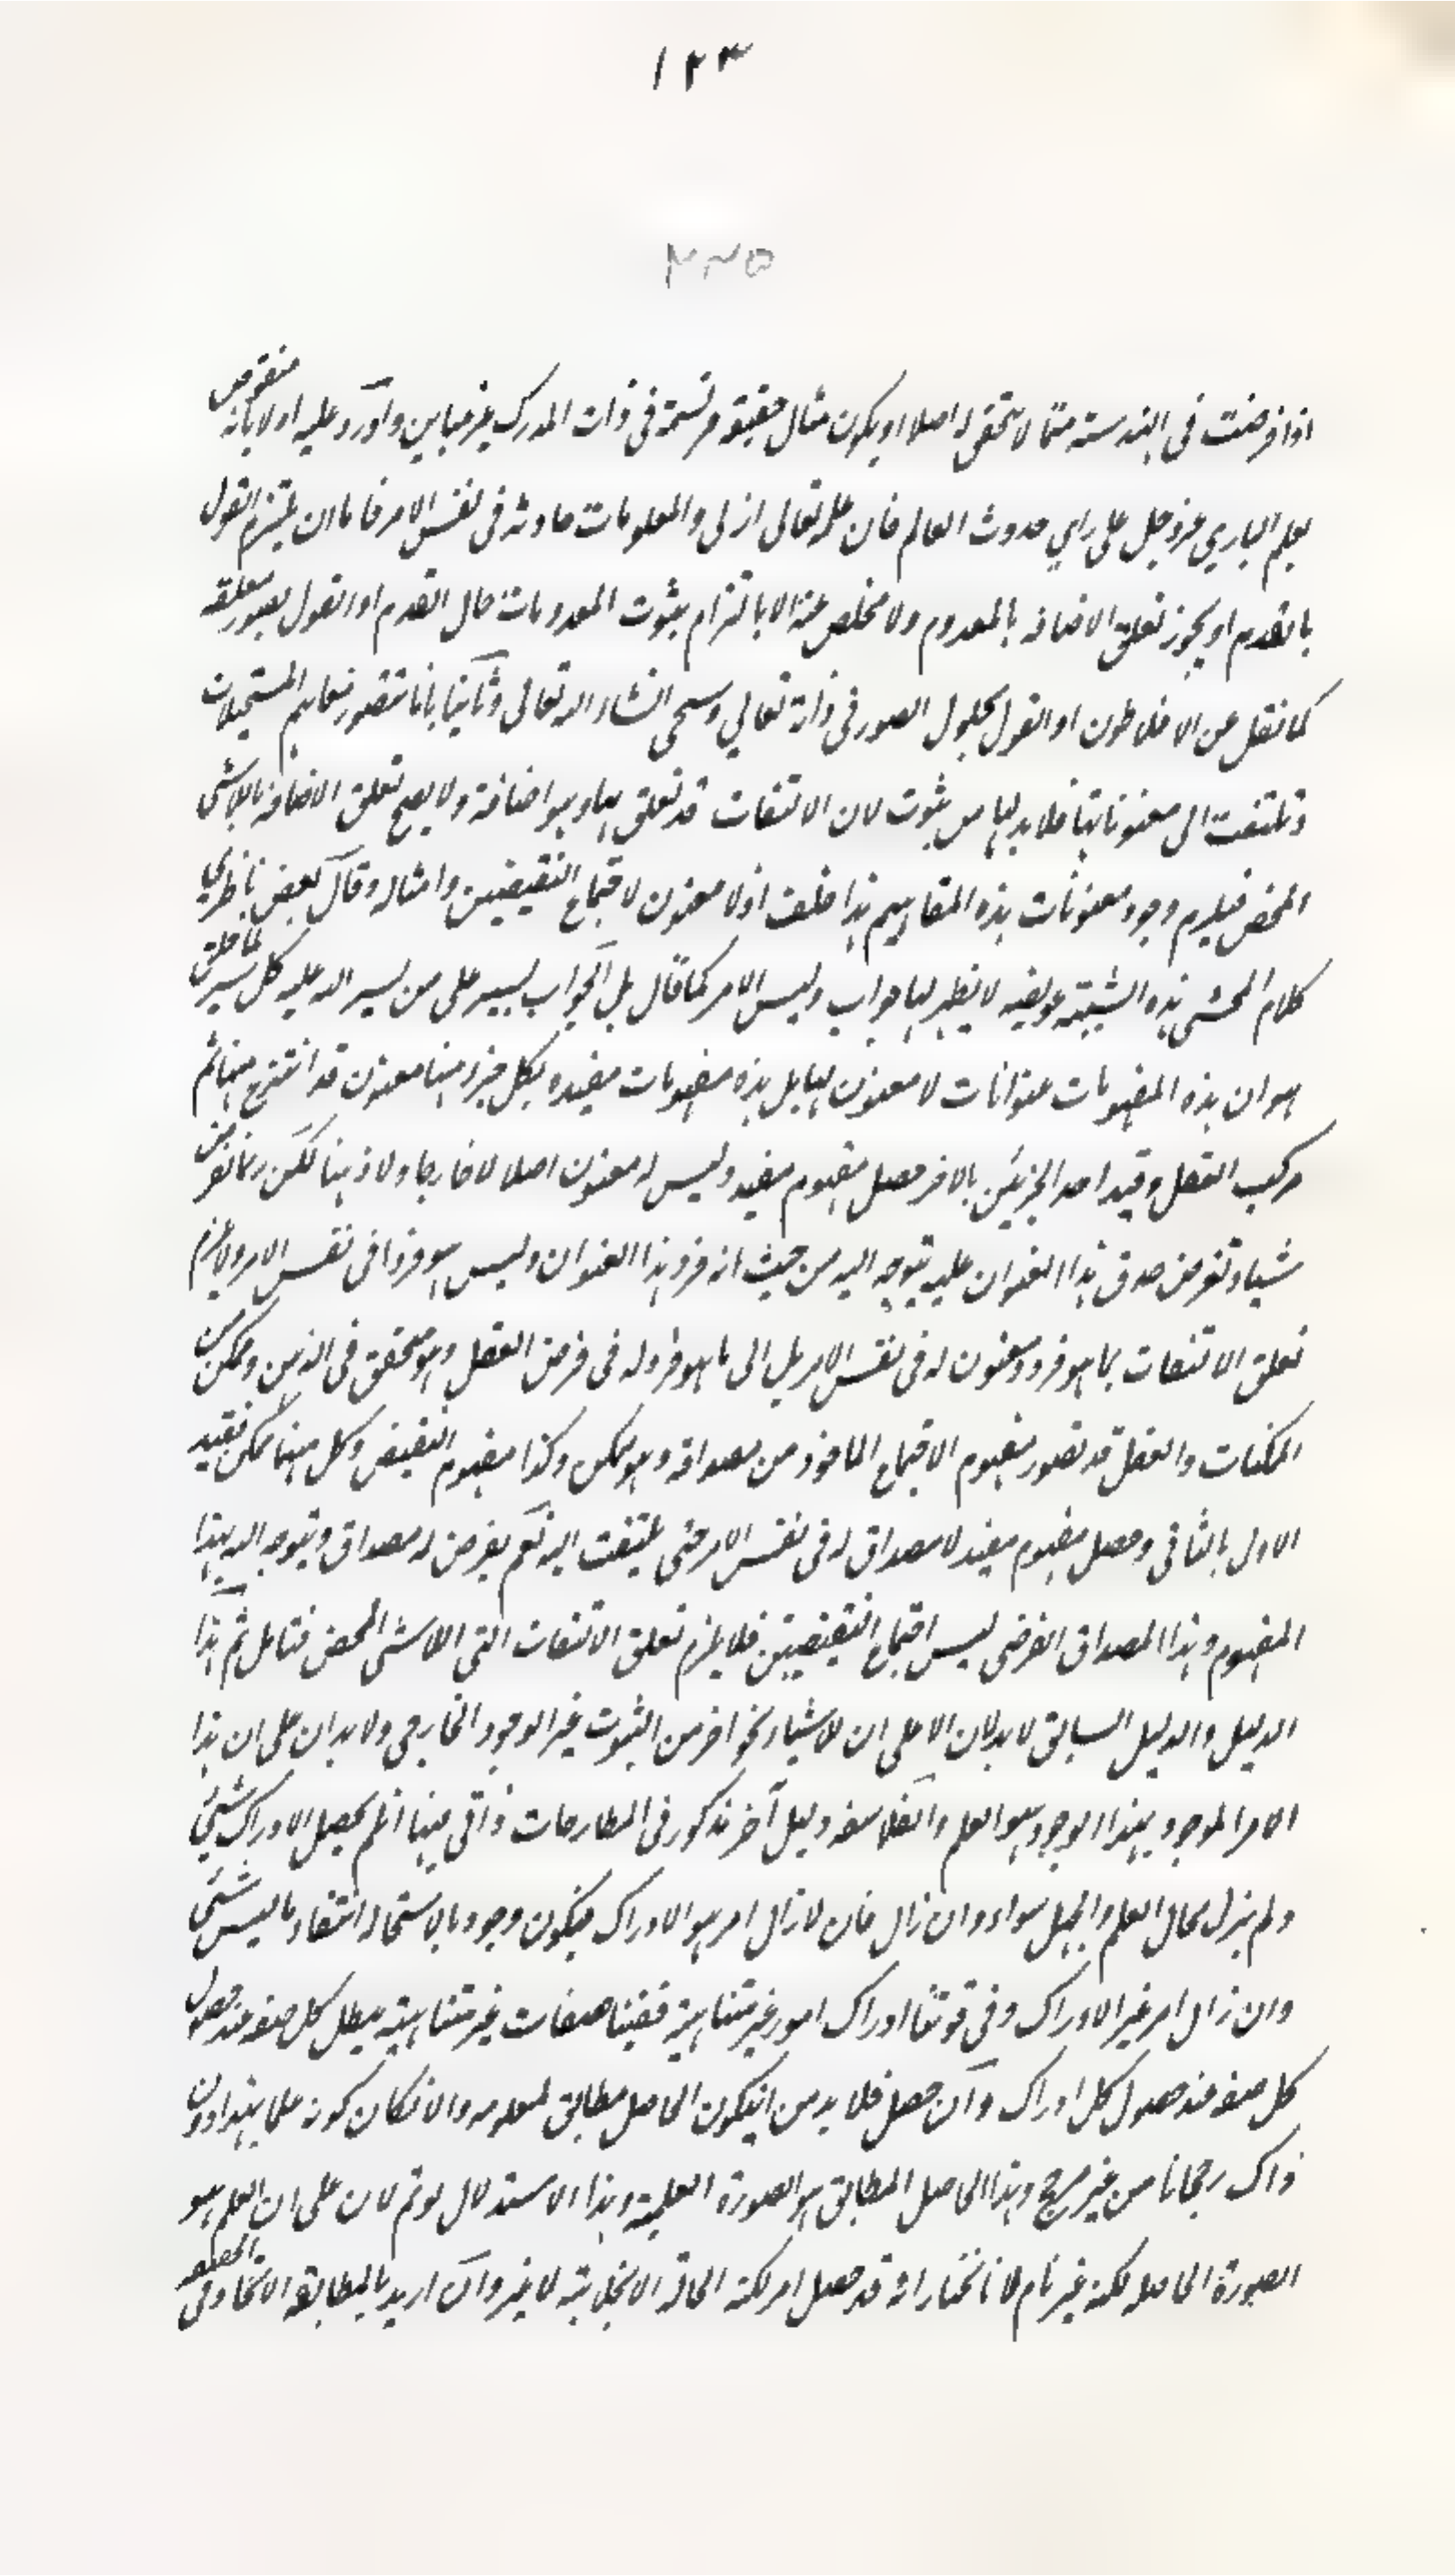 ١٢٣
٢٢٥
اذا فرضت فى الهندسة مما لا تحقق له اصلا او يكون مثال حقيقة مرتسمة فى ذات المدرك غير مباين واورد عليه اولا بانه منقوض
بعلم الباري عز وجل على راي حدوث العالم فان علمه تعالى ازلى والمعلومات حادثه فى نفس الامر فاما ان يلتزم القول
بالقدم او يجوز تعلق الاضافه بالمعدوم ولا مخلص عنه الا بالتزام بثبوت المعدومات حال القدم او القول بصور معلقه
كما نقل عن الافلاطون او القول بحلول الصور فى ذاته تعالي وسيجى انشاء الله تعالى وثانيا بانا نتصور مفاهيم المستحيلات
ونلتفت الى معنوناتها فلا بد لها من ثبوت لان الالتفات قد تعلق بها وهو اضافة ولا يصح تعلق الاضافه باللاشى
المحض فيلزم وجود معنونات هذه المفاهيم هذا خلف اذ لا معنون لاجتماع النقيضين وامثاله وقال بعض ناظري
كلام المحشى هذه الشبهة عويصه لا يظهر لها جواب وليس الامر كما قال بل الجواب يسير على من يسر الله عليه كل يسير لما خلق
هو ان هذه المفهومات عنوانات لا معنون لها بل هذه مفهومات مقيده لكل جزء منها معنون قد انتزع منها ثم
ركب العقل وقيد احد الجزئين بالاخر حصل مفهوم مقيد وليس له معنون اصلا لا خارجا ولا ذهنا لكن ربما نفرض
شيئا ونفرض صدق هذا العنوان عليه يتوجه اليه من حيث انه فرد هذا العنوان وليس هو فردا فى نفس الامر ولا يلزم
تعلق الالتفات بما هو فرد ومعنون له فى نفس الامر بل الى ما هو فرد له فى فرض العقل وهو متحقق فى الذهن وممكن من
الممكنات والعقل قد تصور مفهوم الاجتماع الماخوذ من مصداقه وهو ممكن وكذا مفهوم النقيض وكل منهما ممكن فقيد
الاول بالثانى وحصل مفهوم مقيد لا مصداق له فى نفس الامر حتى يلتفت اليه نعم يفرض له مصداق ويتوجه اليه بهذا
المفهوم وهذا المصداق الفرضى ليس اجتماع النقيضين فلا يلزم تعلق الالتفات الى اللاشى المحض فتامل ثم هذا
الدليل والدليل السابق لا يدلان الا على ان للاشياء نحوا اخر من الثبوت غير الوجود الخارجى ولا يدلان على ان هذا
الامر الموجود بهذا الوجود هو العلم وللفلاسفه دليل آخر مذكور فى المطارحات واقى منها ان لم يحصل الادراك شئ
ولم يزل فحال العلم والجهل سواء وان زال فان لا زال امر هو الادراك فيكون وجوديا لاستحاله انتفاء ما ليس بشئ
وان زال امر غير الادراك وفى قوتنا ادراك امور غير متناهية ففينا صفات غير متناهيته يبطل كل صفه عند حصول
كل صفه عند حصول كل ادراك وان حصل فلا بد من ان يكون الحاصل مطابق لمعلومه والا فكان كونه علما بهذا دون
ذاك رجحانا من غير مرجح وهذا الحاصل المطابق هو الصورة العلميه وهذا الاستدلال لو تم لان على ان العلم هو
الصورة الحاصله لكنه غير تام لانا نختار انه قد حصل امر لكنه الحاله الانجلائيه لا غير وان اريد بالمطابقه الاتحاد فى